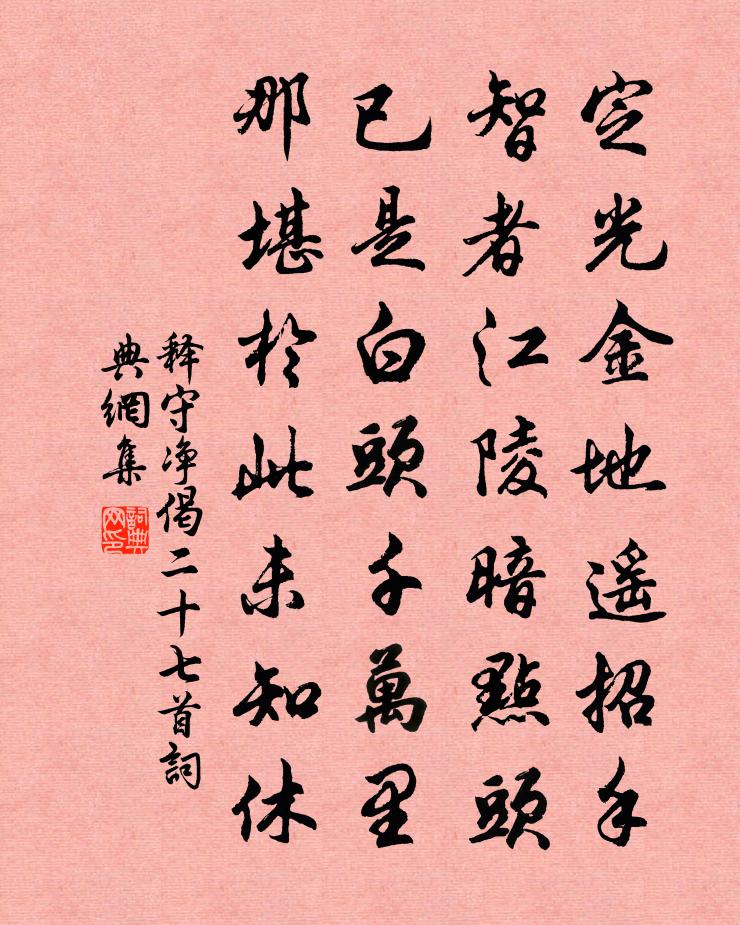 定光金地遥招手
智者江陵暗點頭
已是白頭千萬里
那堪於此未知休
释守净偈二十七首詞
典網集
詞典網印